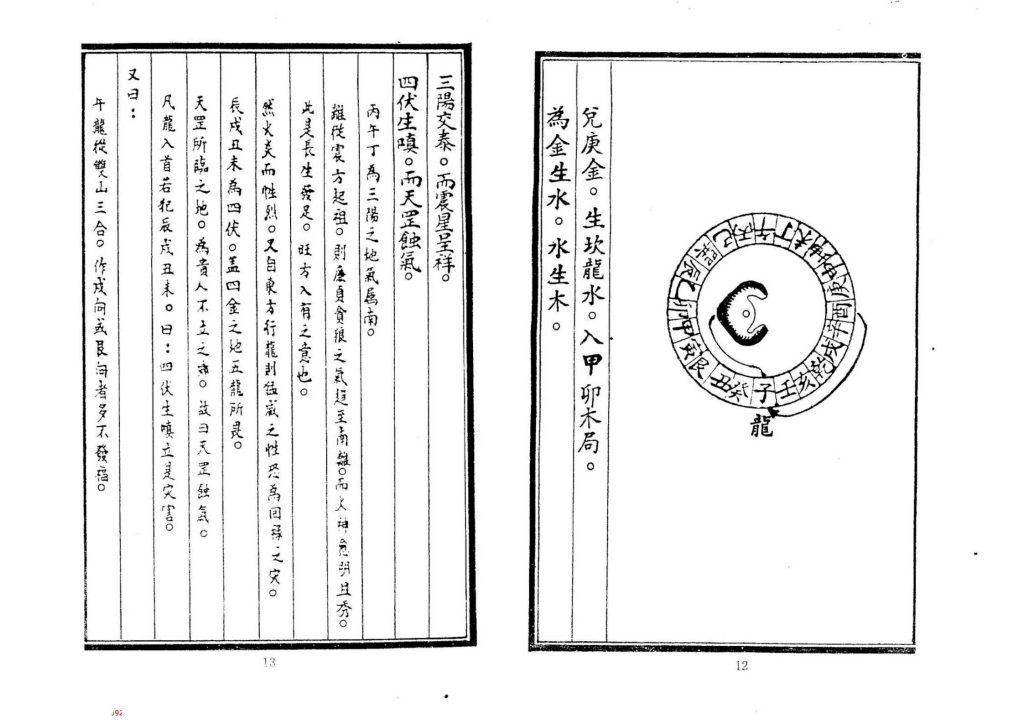 午丁未坤申庚酉辛戌乾亥壬子癸丑艮寅甲卯乙辰巽巳丙
龍
兌庚金。生坎龍水。入甲卯木局。
為金生水。水生木。
12
三陽交泰。而震星呈祥。
四伏生嗔。而天罡蝕氣。
丙午丁為三陽之地氣屬南。
離從震方起祖。則廉貞貪狼之氣趕至南離。而火神愈明且秀。
此是長生發足。旺方入之意也。
然火炎而性烈。又自東方行龍則猛威之性恐為回祿之灾。
辰戌丑未為四伏。蓋四金之地五龍所畏。
天罡所臨之地。為貴人不立之鄉。故曰天罡蝕氣。
凡龍入首若犯辰戌丑未。曰：四伏生嗔立是灾害。
又曰：
午龍從雙山三合。作戌向或艮向者多不發福。
13